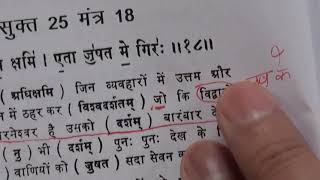 सुक्त 25 मंत्र 18
क्षमि॑ । ए॒ता जु॑षत मे॒ गिरः॑ ॥१८॥
(अधिक्षमि) जिन व्यवहारों में उत्तम और
में ठहर कर (विश्वदर्शतम्) जो कि
है उसको (दर्शम्) बारंबार
(नु) भी (दर्शम्) पुनः पुनः देख के
वाणियों को (जुषत) सदा सेवन